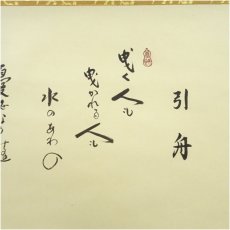 引舟
曳く人も
曳かれる人も
水のあわの